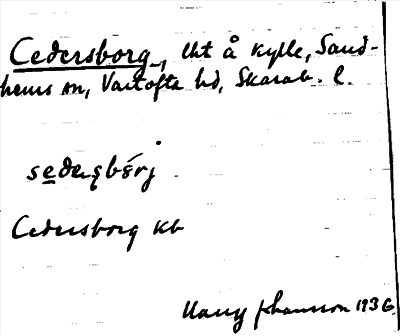 Cedersborg, lht å Kylle, Sand-
hems sn, Vartofta hd, Skarab. l.
sedeʂbǽrj
Cedersborg kb
Harry Johansson 1936